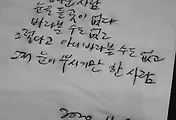 사람
눈을 둘 곳이 없다
바라볼 수도 없고
그렇다고 아니 바라볼 수도 없고
그저 눈이 부시기만 한 사람
2020